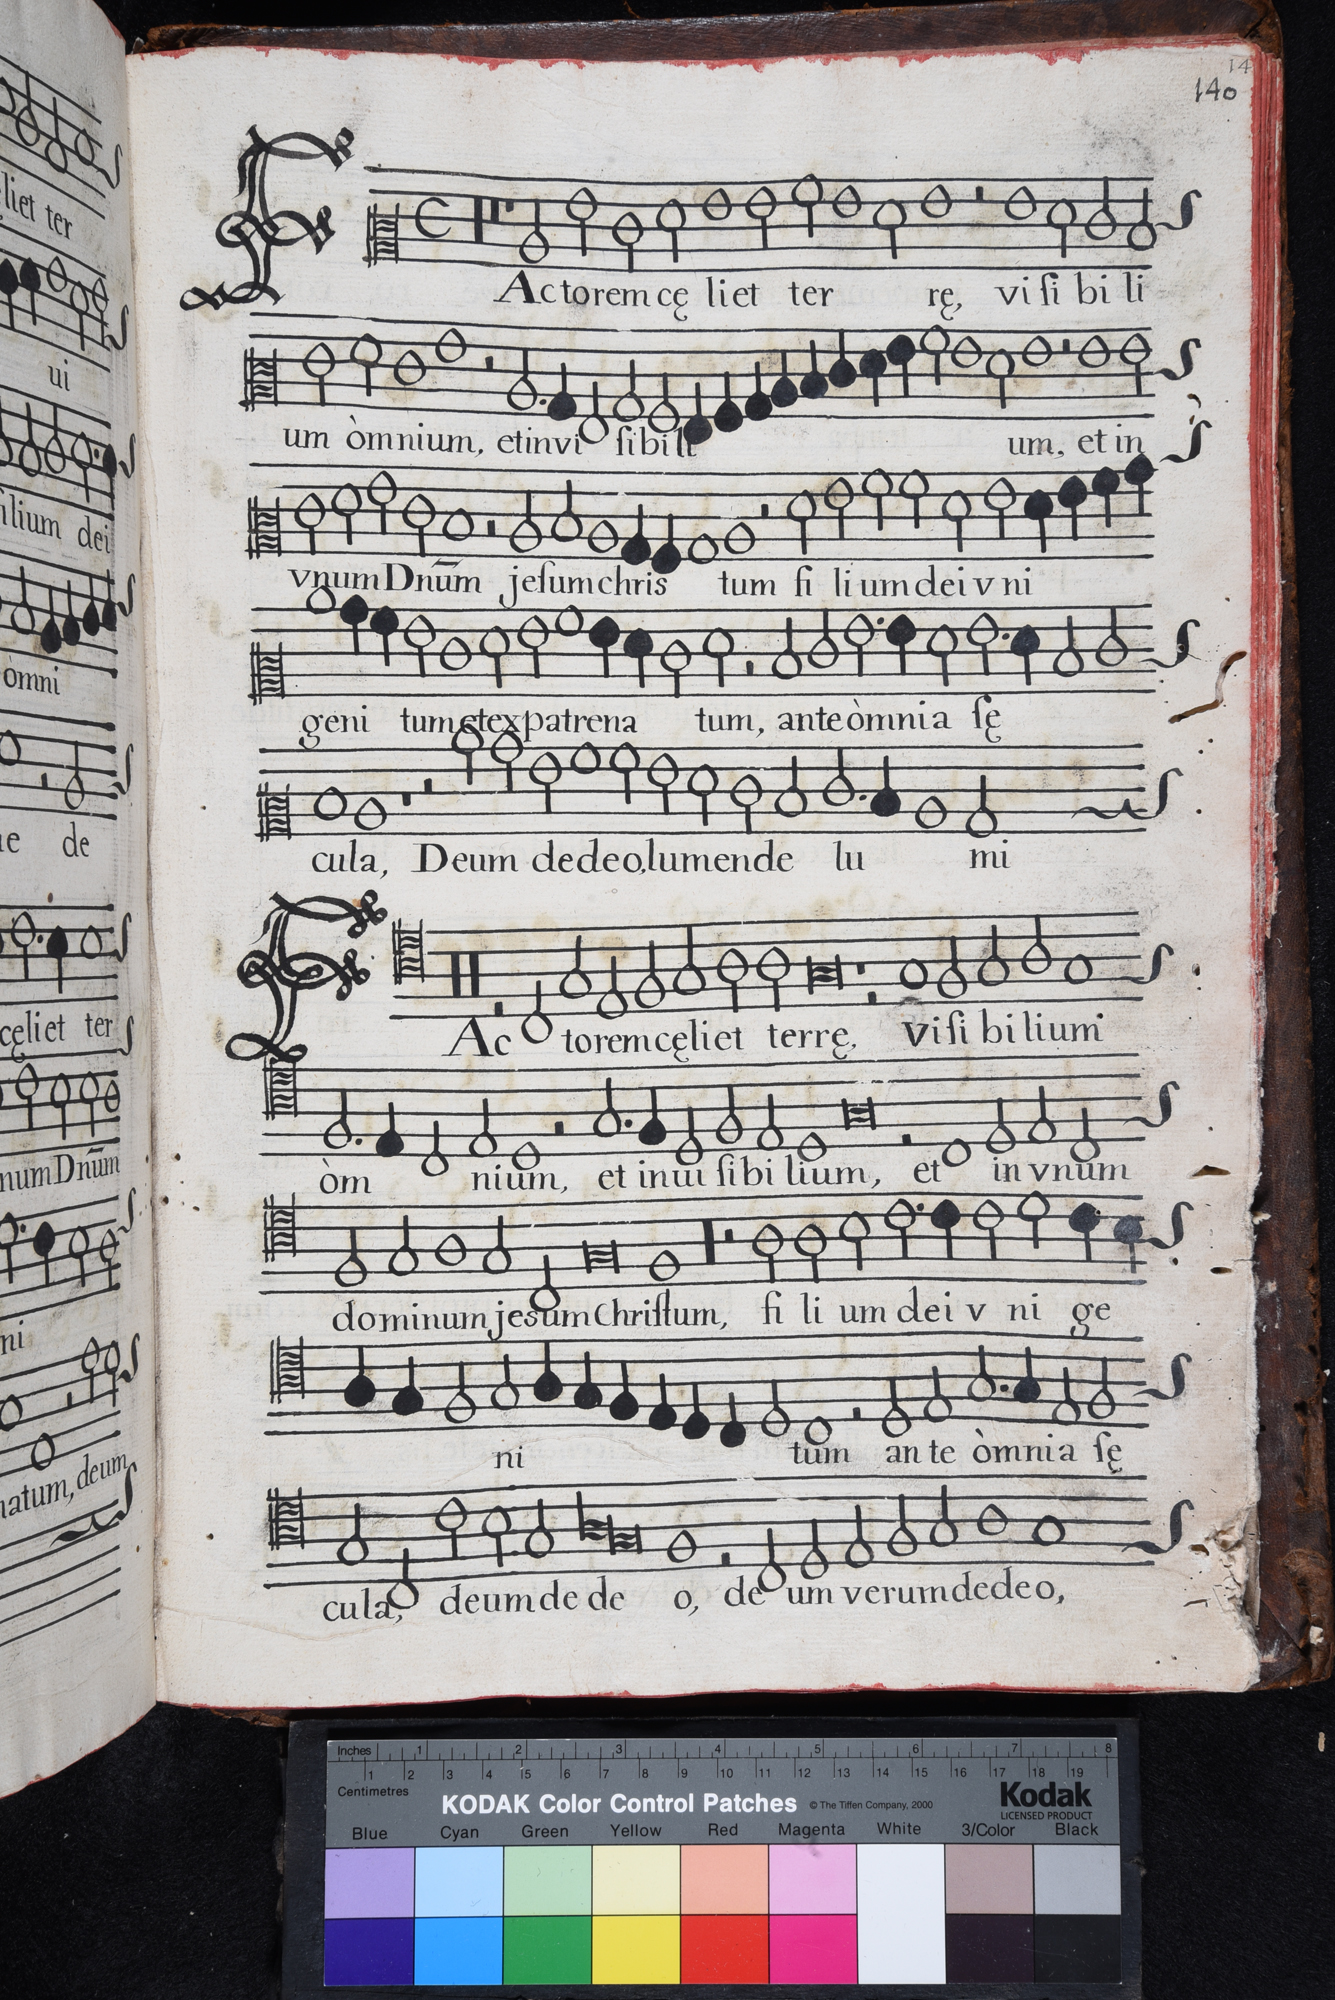 14
140
liet ter
ui
ilium dei
òmni
ne de
cęliet ter
num Dnūm
ni
natum, deum
F
Actorem cę li et ter rę, visi bi li
um òmnium, et invi sibili um, et in
vnum Dnūm jesum chris tum fi li um dei v ni
geni tum et ex patre na tum, ante òmnia sę
cula, Deum de deo, lumen de lu mi
F
Ac torem cęli et terrę, visi bilium
òm nium, et inui sibi lium, et in vnum
dominum jesum Christum, fi li um dei v ni ge
ni tum an te òmnia sę
cula, deum de de o, de um verum de deo,
Inches 1 2 3 4 5 6 7 8
Centimetres 1 2 3 4 5 6 7 8 9 10 11 12 13 14 15 16 17 18 19
KODAK Color Control Patches © The Tiffen Company, 2000 Kodak
LICENSED PRODUCT
Blue Cyan Green Yellow Red Magenta White 3/Color Black